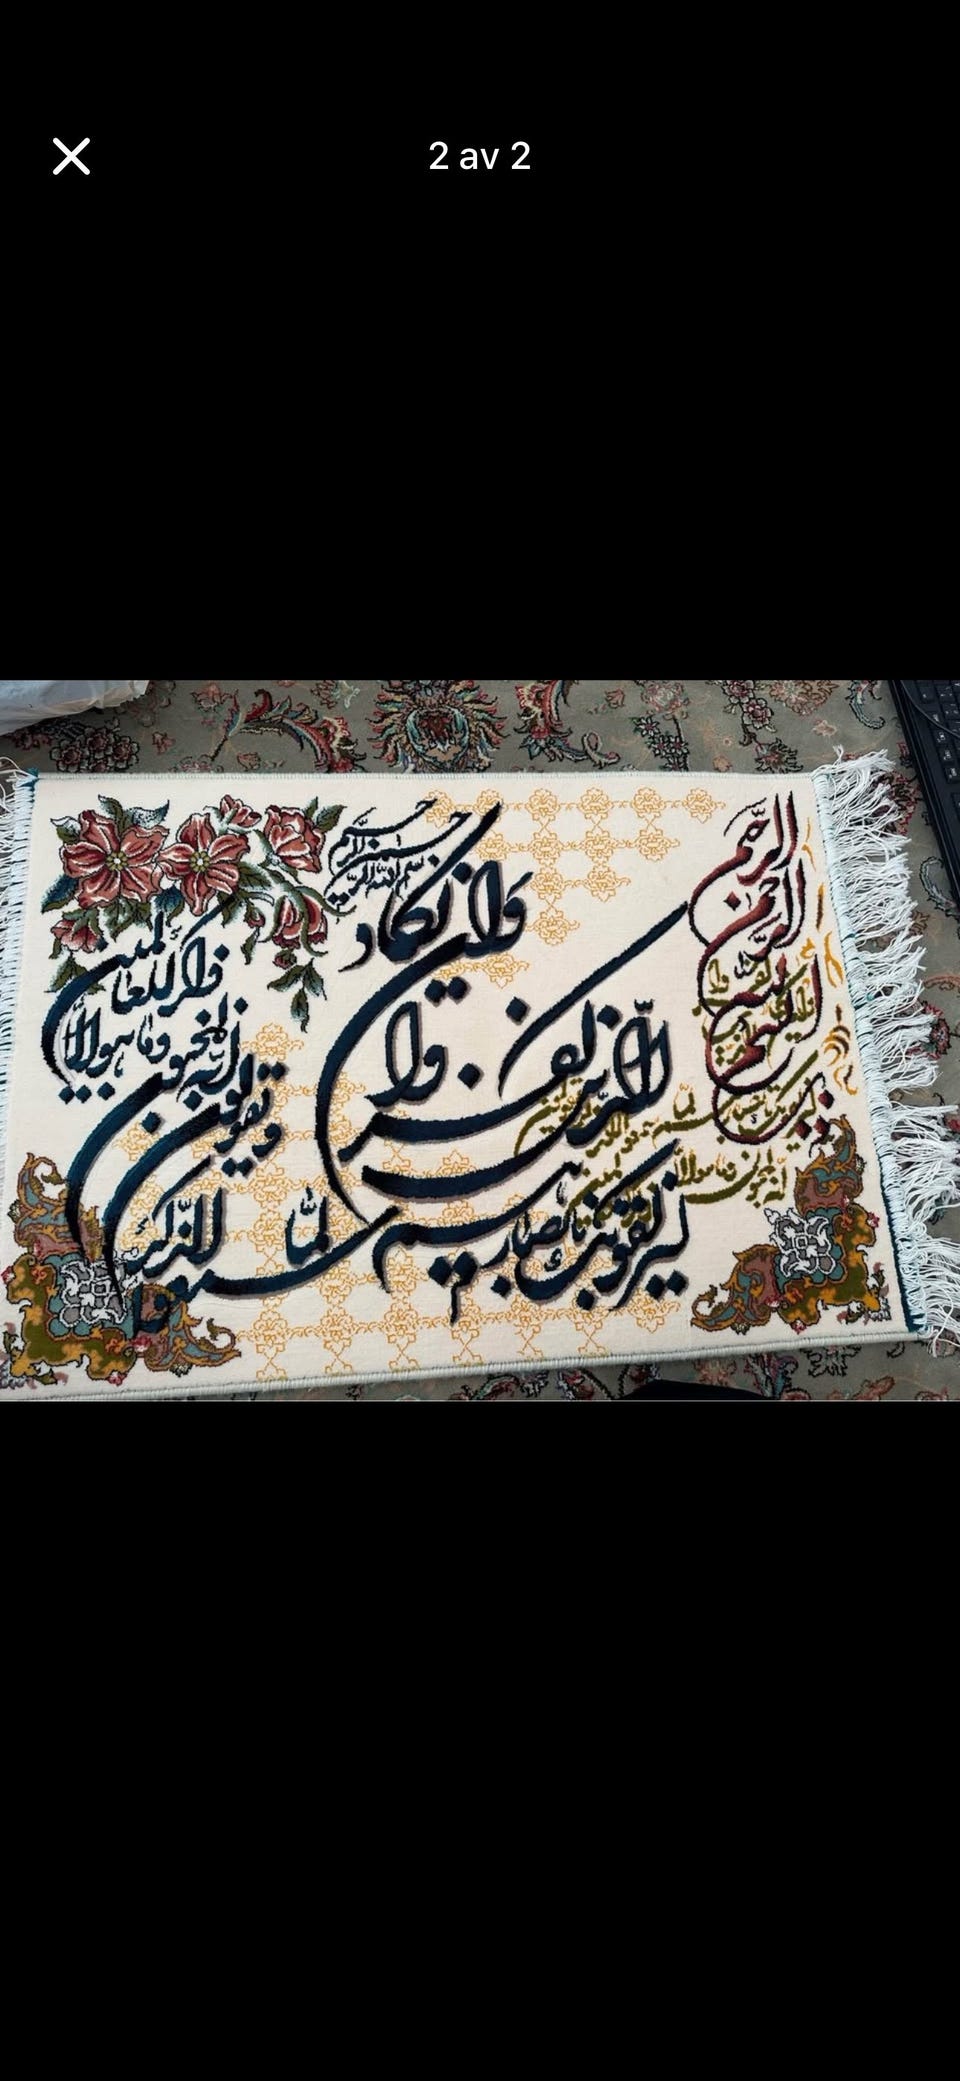 2 av 2
بسم الله الرحمن الرحیم
بسم الله الرحمن الرحیم
وان یکاد
الذین کفروا
لیزلقونک بابصارهم
لما سمعوا الذکر
ویقولون
انه لمجنون وما هو الا
ذکر للعالمین